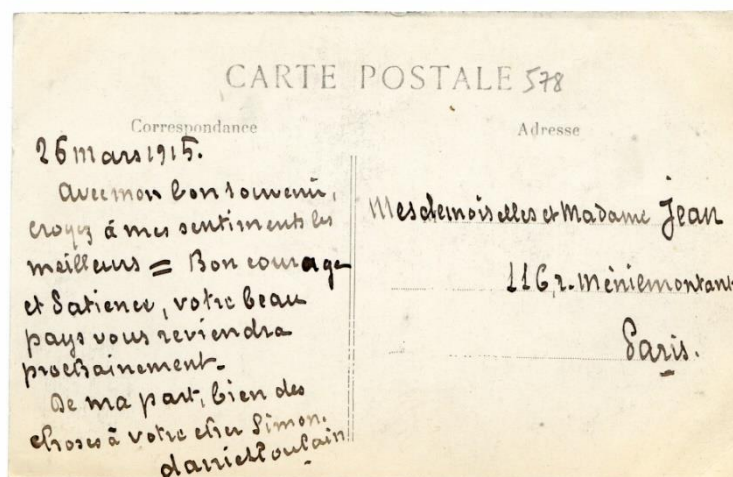 CARTE POSTALE 578
Correspondance
Adresse
26 mars 1915.
Avec mon bon souvenir,
croyez à mes sentiments les
meilleurs = Bon courage
et Patience, votre beau
pays vous reviendra
prochainement.
De ma part, bien des
choses à votre cher Simon.
daniel Poulain
Mesdemoiselles et Madame Jean
116, r. Ménilmontant
Paris.